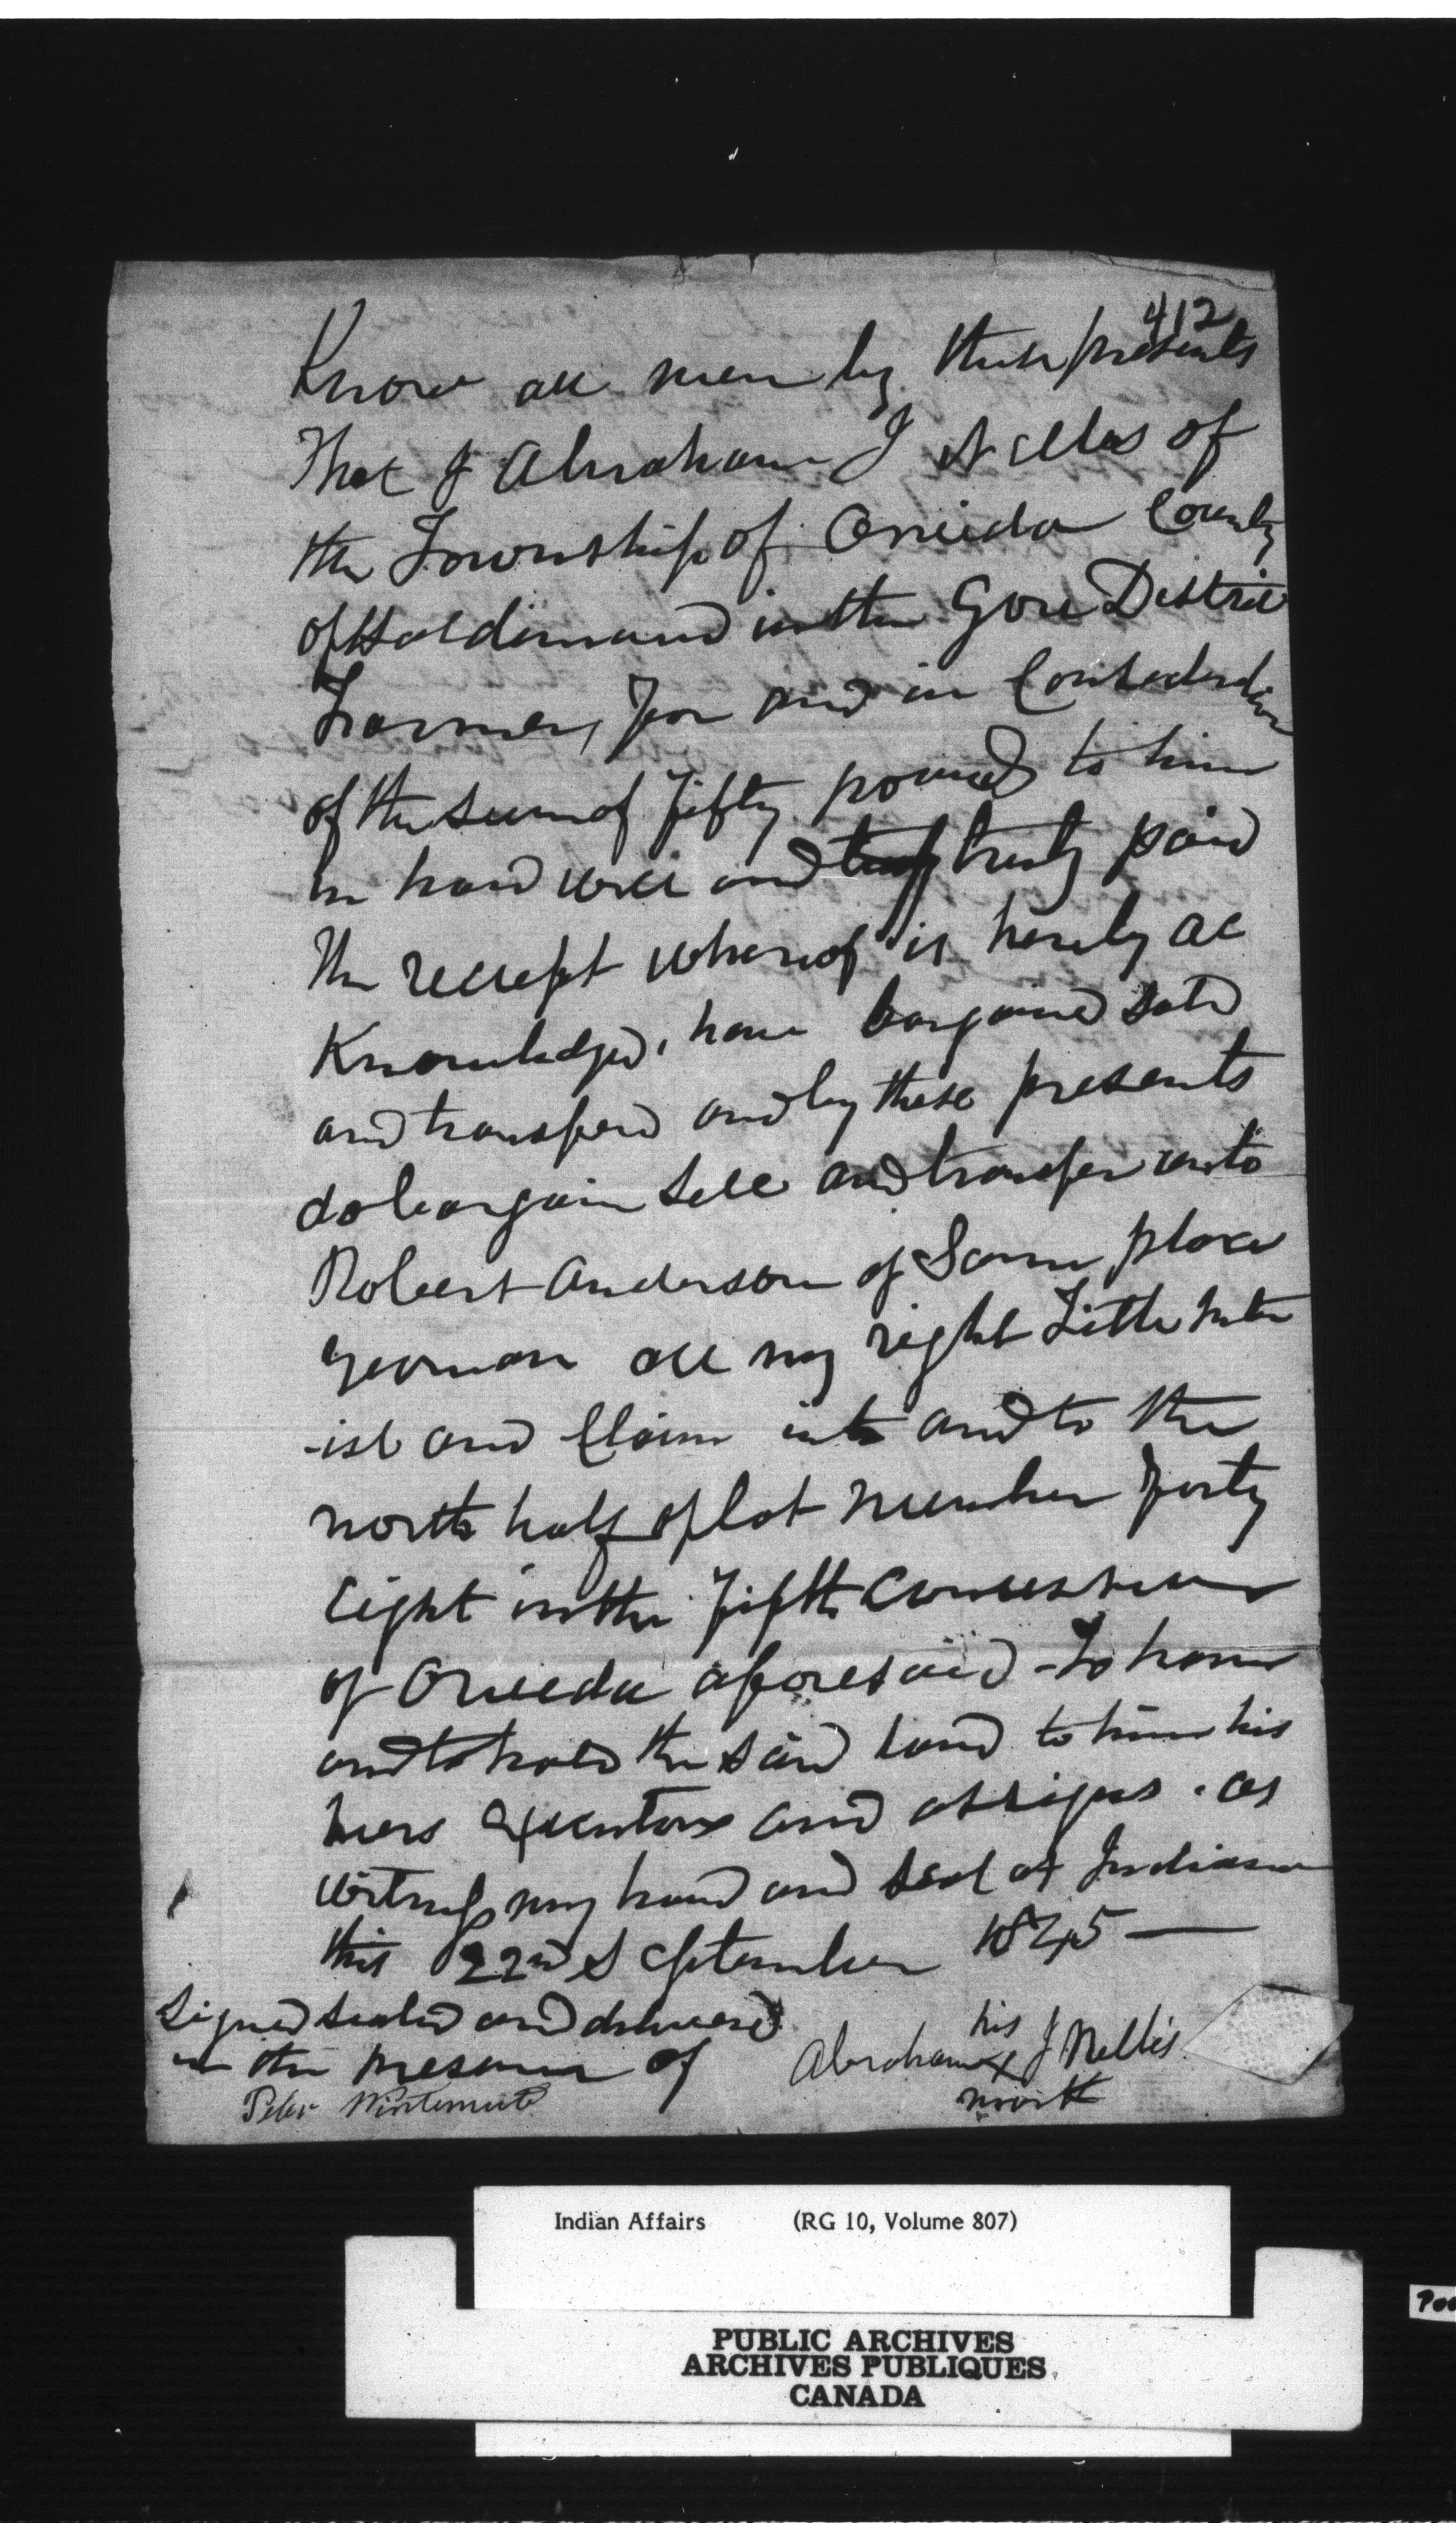 412
Know all men by these presents
That I Abraham J Nelles of
the Township of Oneida County
of Haldimand in the Gore District
Farmer, for and in Consideration
of the sum of fifty pounds to him
in hand well and truly paid
the receipt whereof is hereby ac
Knowledged, have bargained sold
and transfered and by these presents
do bargain sell and transfer unto
Robert Anderson of Same place
yeoman all my right Tittle inter
-ist and Claim into and to the
north half of lot number forty
Eight in the fifth Concession
of Oneida aforesaid - To have
and to hold the said land to him his
heirs Executors and assigns. as
witness my hand and seal at Indiana
this 22nd September 1845 —
Signed sealed and delivered
in the presence of
his
Abraham X J Nellis
mark
Peter Wintemute
Indian Affairs (RG 10, Volume 807)
PUBLIC ARCHIVES
ARCHIVES PUBLIQUES
CANADA